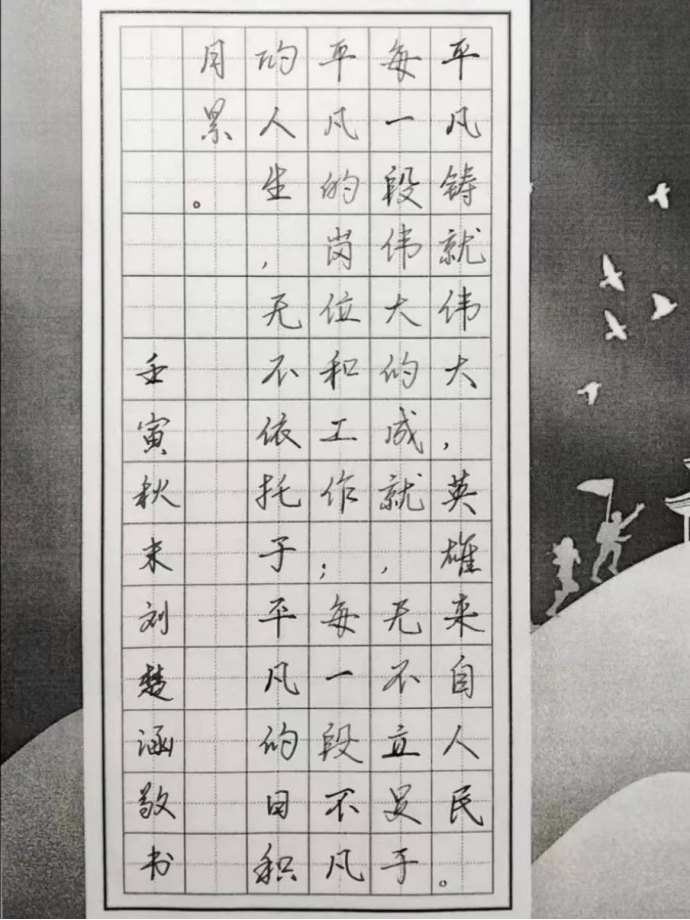 平凡铸就伟大，英雄来自人民。
每一段伟大的成就，无不立足于
平凡的岗位和工作；每一段不凡
的人生，无不依托于平凡的日积
月累。
壬寅秋末刘楚涵敬书